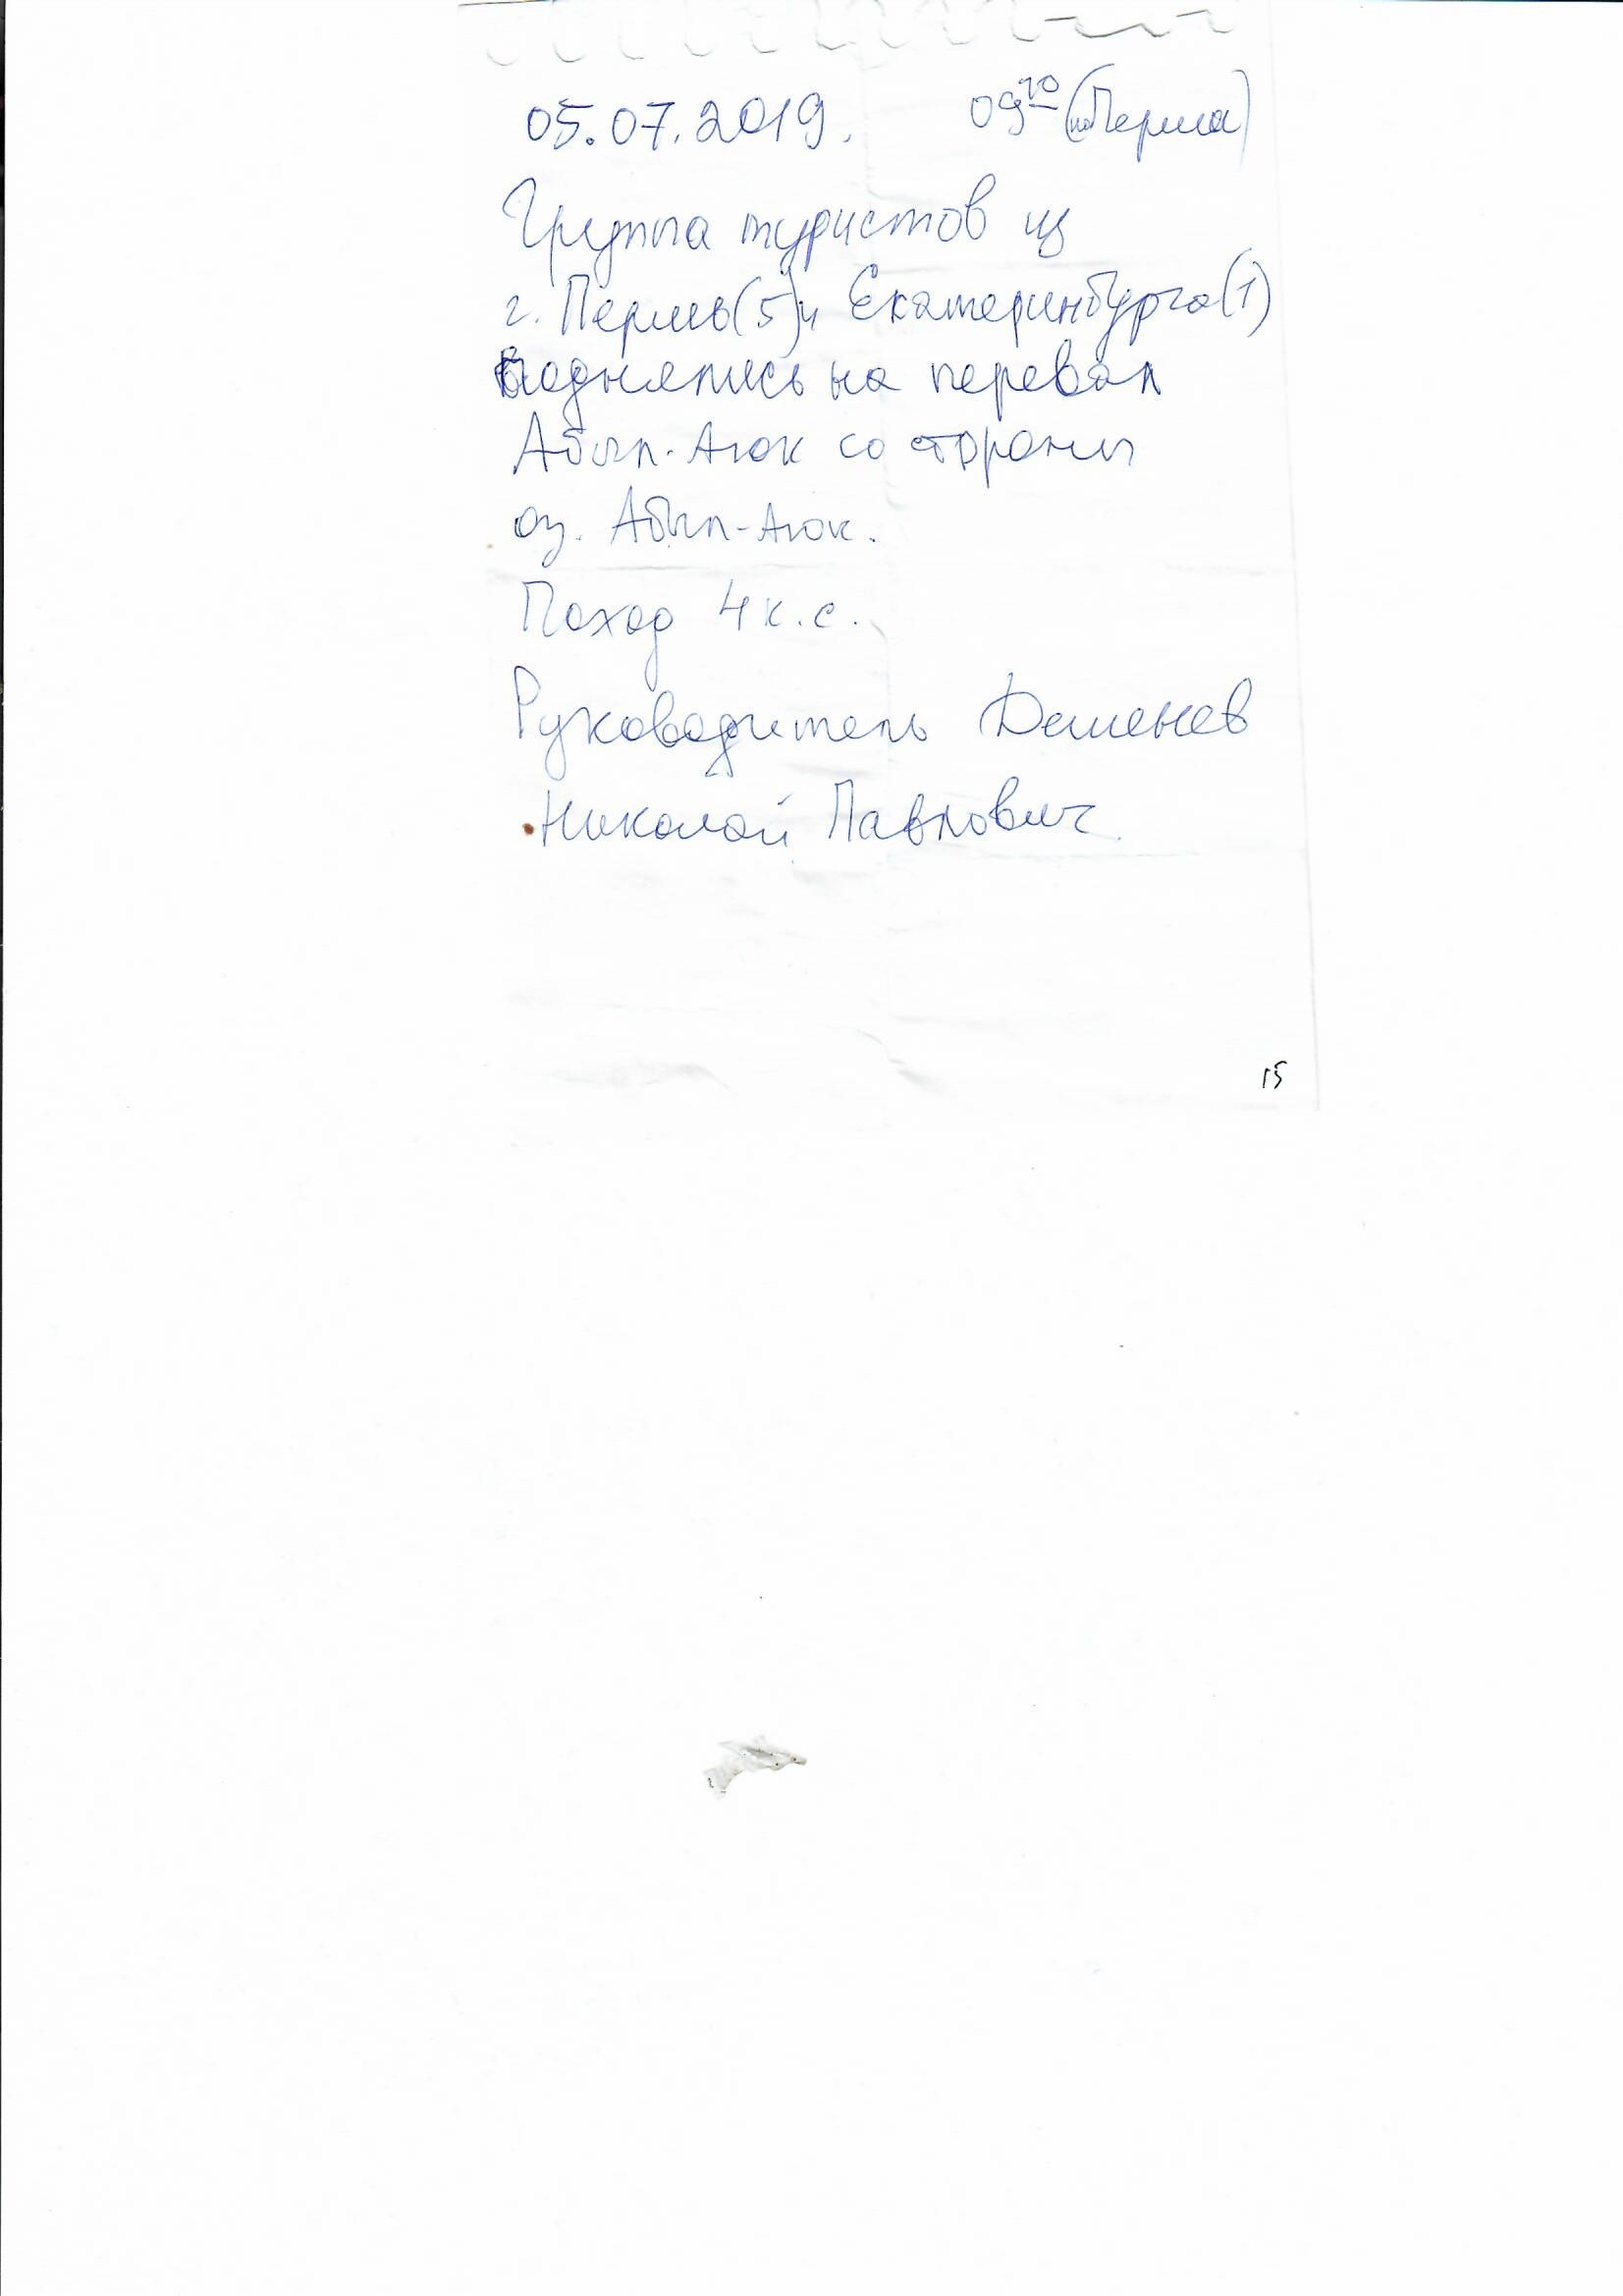 05.07.2019. 09²⁰ (по Перми)
Группа туристов из
г. Пермь(5) и Екатеринбурга(1)
поднялись на перевал
Абыл-Аюк со стороны
оз. Абыл-Аюк.
Поход 4 к.с.
Руководитель Деменев
Николай Павлович
15